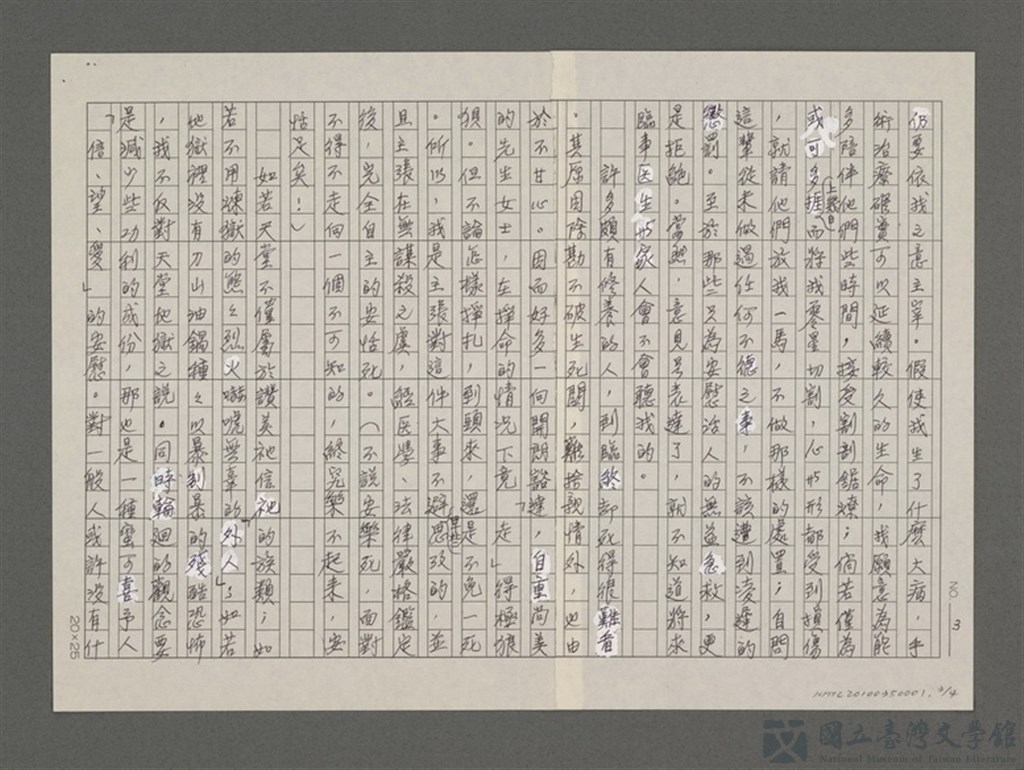 仍要依我之意主宰。假使我生了什麼大病,手
術治療確實可以延續較久的生命,我願意為能
多陪伴他們一些時間,接受割剖鋸燎;倘若僅為
或可多捱上數日而將我零星切割,心也形都受到損傷
,就請他們放我一馬,不做那樣的處置;自問
這輩從未做過任何不德之事,不該遭到凌遲的
懲罰。至於那些只為安慰活人的無益急救,更
是拒絕。當然,意見是表達了,就不知道將來
臨事医生也家人會不會聽我的。
許多頗有修養的人,到臨終卻死得很難看
。其原因除勘不破生死關,難捨親情外,也由
於不甘心。因而好多一向開朗豁達,自重尚美
的先生女士,在掙命的情況下竟「走」得極狼
狽。但不論怎樣掙扎,到頭來,還是不免一死
。所以,我是主張對這件大事不避思及的,並
且主張在無謀殺之虞,經医學、法律嚴格鑑定
後,完全自主的安恬死。(不說安樂死,面對
不得不走向一個不可知的,終究樂不起來,安
恬足矣!)
如若天堂不僅屬於讚美祂信祂的族類;如
若不用煉獄的熊々烈火嚇唬無辜的「外人」;如若
地獄裡沒有刀山油鍋種々以暴制暴的殘酷恐怖
,我不反對天堂地獄之說。同時輪迴的觀念要
是減少些功利的成份,那也是一種蠻可喜予人
「信、望、愛」的安慰。對一般人或許沒有什
3
20×25
NMTL20100350001, 3/4
國立臺灣文學館
National Museum of Taiwan Literature